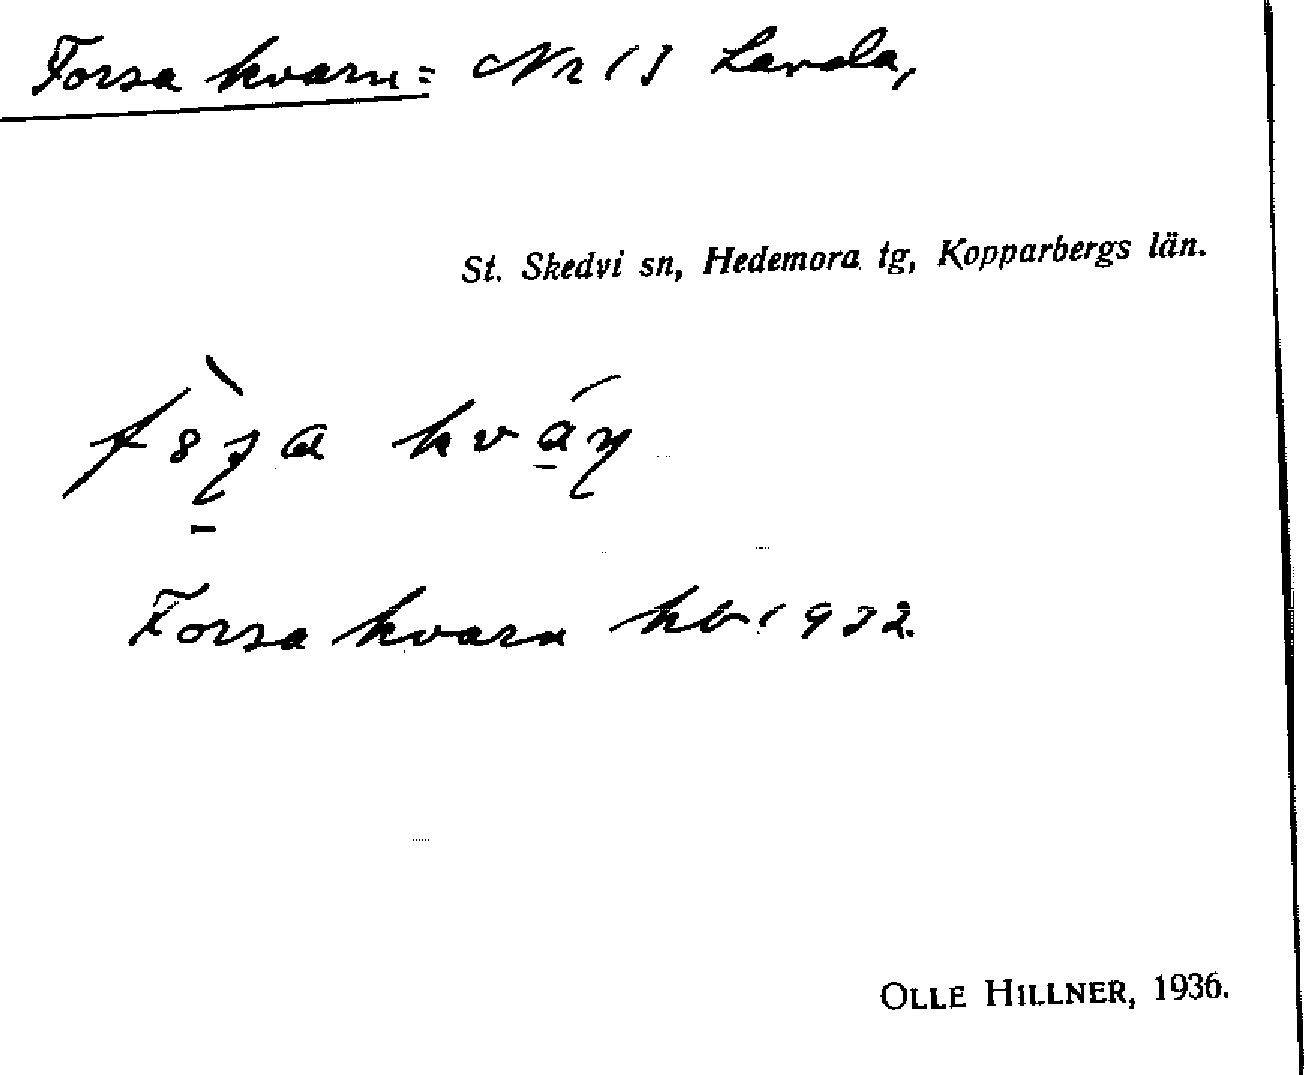 Forsa kvarn = Nr 13 Landa,
St. Skedvi sn, Hedemora tg, Kopparbergs län.
Forsa kvarn kb 1932.
OLLE HILLNER, 1936.